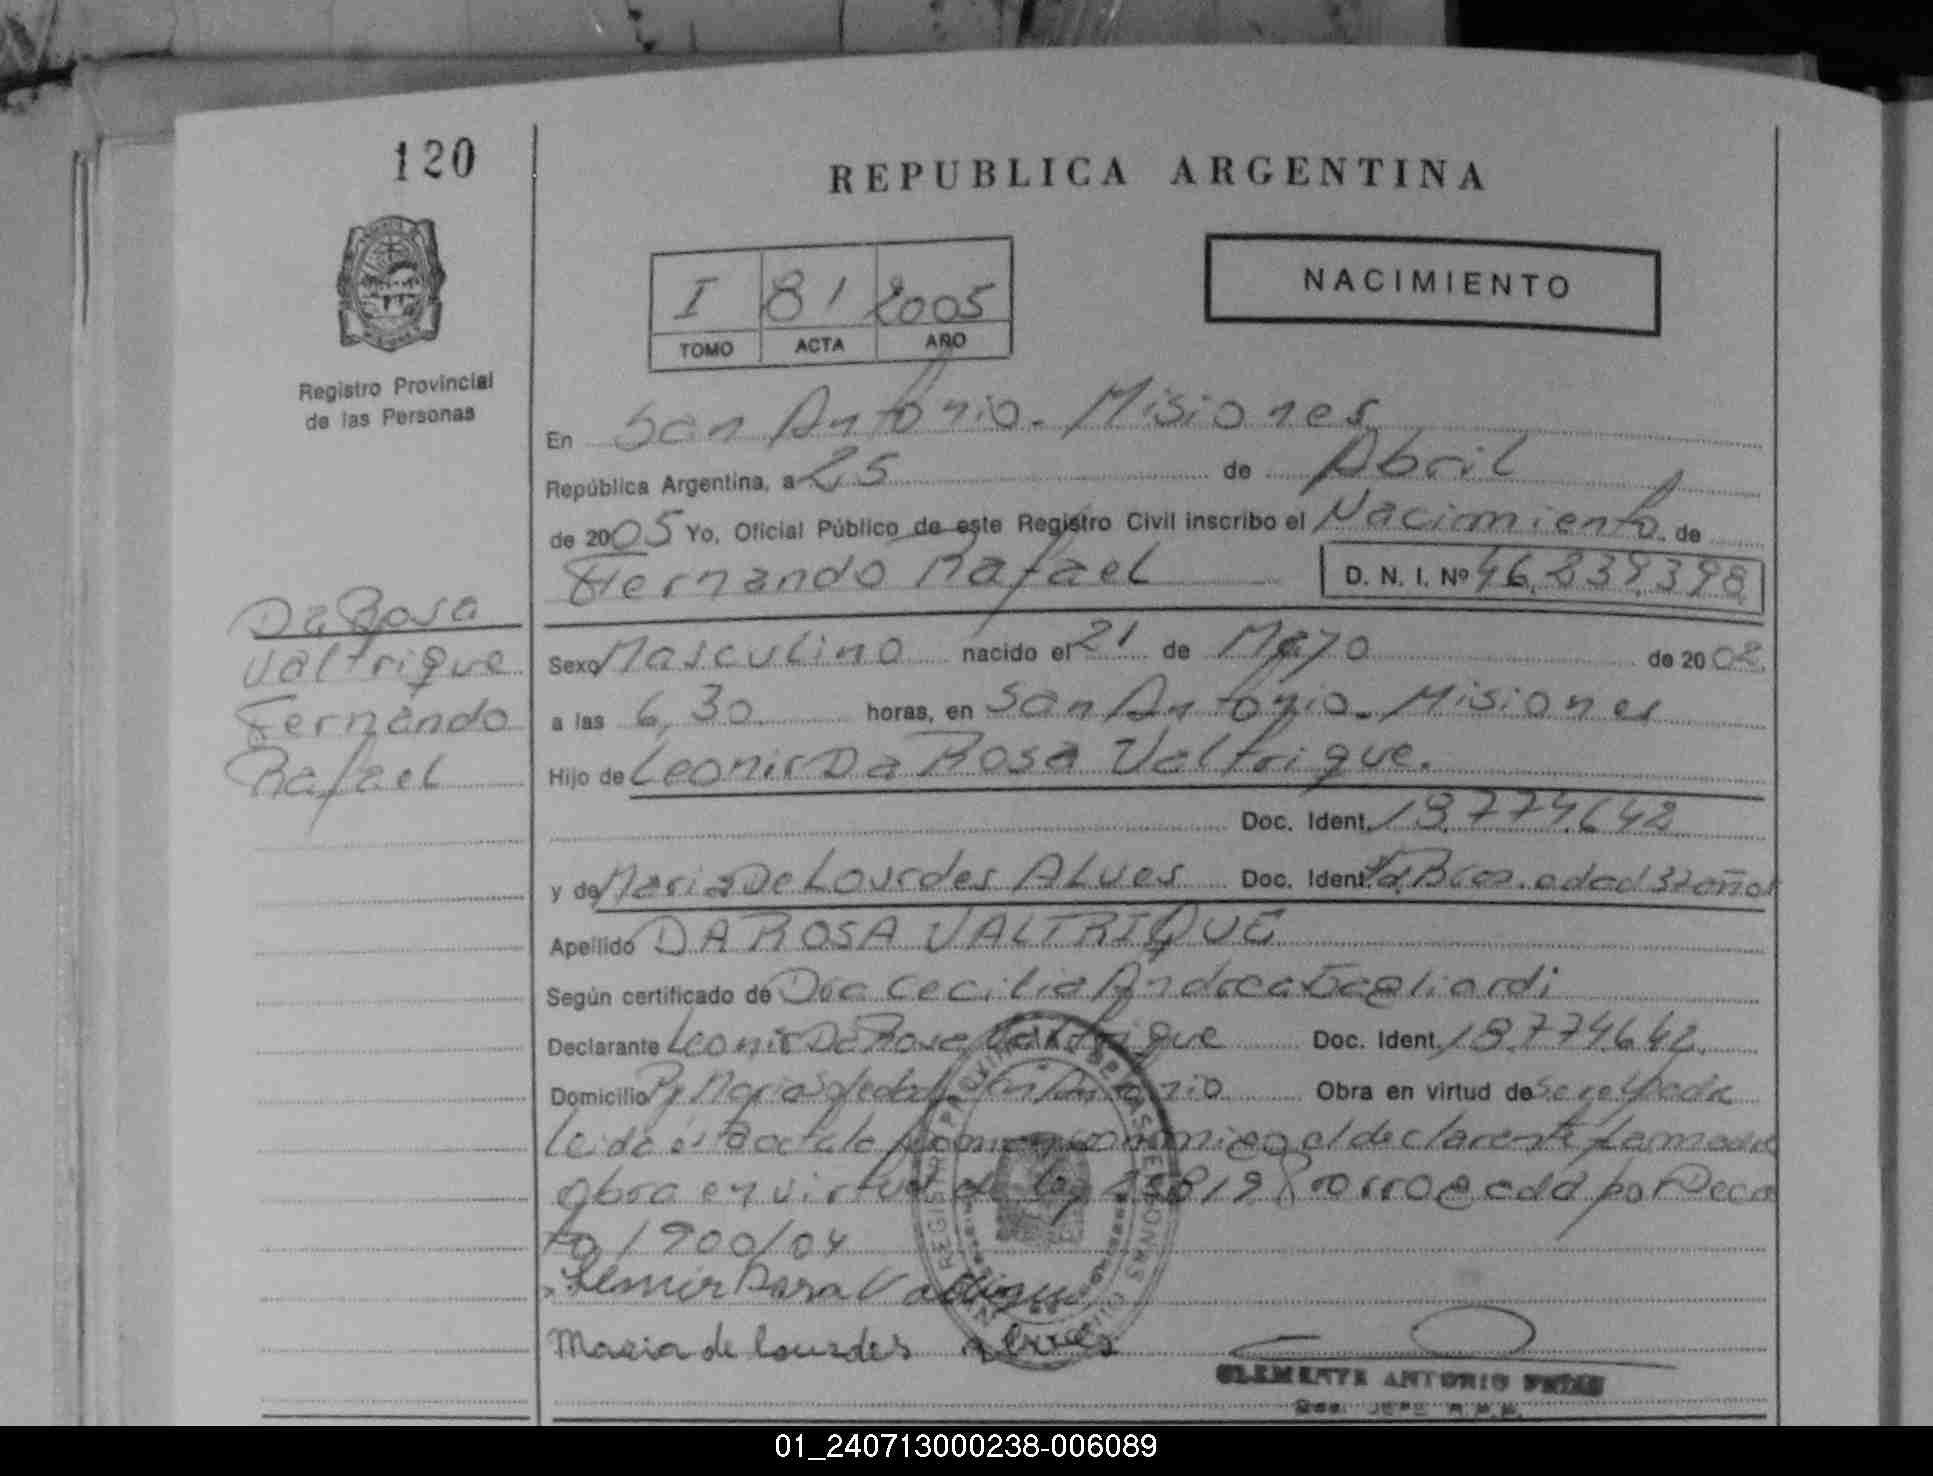 120
REPUBLICA ARGENTINA
NACIMIENTO
I 81 2005
TOMO ACTA AÑO
Registro Provincial
de las Personas
En San Antonio. Misiones
República Argentina, a 25 de Abril
de 2005 Yo, Oficial Público de este Registro Civil inscribo el Nacimiento de
Fernando Rafael D. N. I. Nº 46.839.398
Da Rosa
Valtrique
Fernando
Rafael
Sexo Masculino nacido el 21 de Mayo de 2002
a las 6,30 horas, en San Antonio. Misiones
Hijo de Leonir Da Rosa Valtrique.
Doc. Ident. 18.774.642
y de Maria De Lourdes Alves Doc. Ident. Bras. edad 32 años
Apellido DA ROSA VALTRIQUE
Según certificado de Dra Cecilia Andrea Gagliardi
Declarante Leonir Da Rosa Valtrique Doc. Ident. 18.774.642
Domicilio San Antonio Obra en virtud de
Leida el acta la el declarante
obra en virtud de ley 25819 Prorrogada por Decre
to 1900/04
Maria de lourdes alves
CLEMENTE ANTONIO
01_240713000238-006089